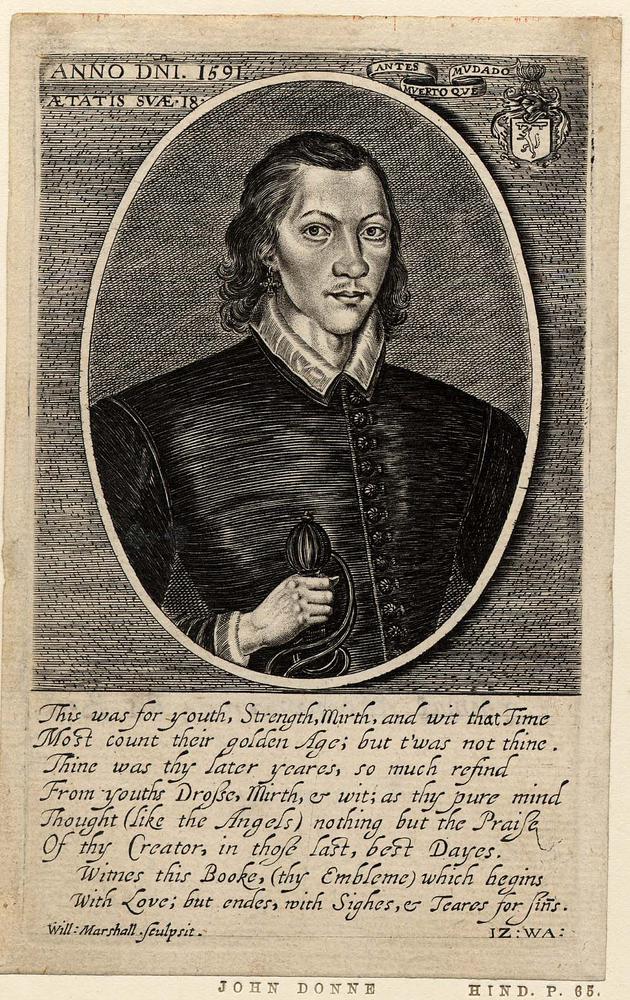 ANNO DNI. 1591.
ÆTATIS SVÆ. 18.
ANTES MVDADO
MVERTO QVE
This was for youth, Strength, Mirth, and wit that Time
Most count their golden Age; but t'was not thine.
Thine was thy later yeares, so much refind
From youths Drosse, Mirth, & wit; as thy pure mind
Thought (like the Angels) nothing but the Praise
Of thy Creator, in those last, best Dayes.
Witnes this Booke, (thy Embleme) which begins
With Love; but endes, with Sighes, & Teares for sin̄s.
Will: Marshall sculpsit.
IZ: WA:
JOHN DONNE
HIND. P. 65.